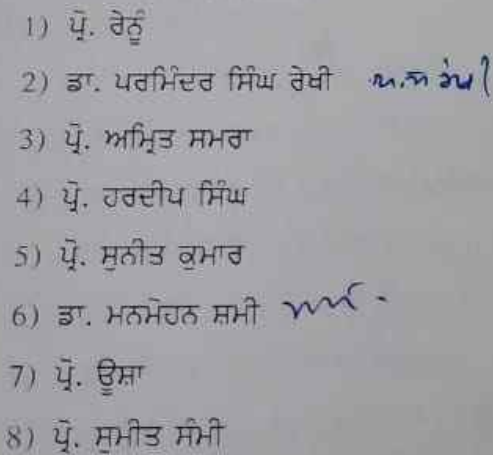 1) ਪ੍ਰੋ. ਰੇਨੂੰ
2) ਡਾ. ਪਰਮਿੰਦਰ ਸਿੰਘ ਰੇਖੀ
3) ਪ੍ਰੋ. ਅਮ੍ਰਿਤ ਸਮਰਾ
4) ਪ੍ਰੋ. ਹਰਦੀਪ ਸਿੰਘ
5) ਪ੍ਰੋ. ਸੁਨੀਤ ਕੁਮਾਰ
6) ਡਾ. ਮਨਮੋਹਨ ਸ਼ਮੀ
7) ਪ੍ਰੋ. ਊਸ਼ਾ
8) ਪ੍ਰੋ. ਸੁਮੀਤ ਸੰਮੀ